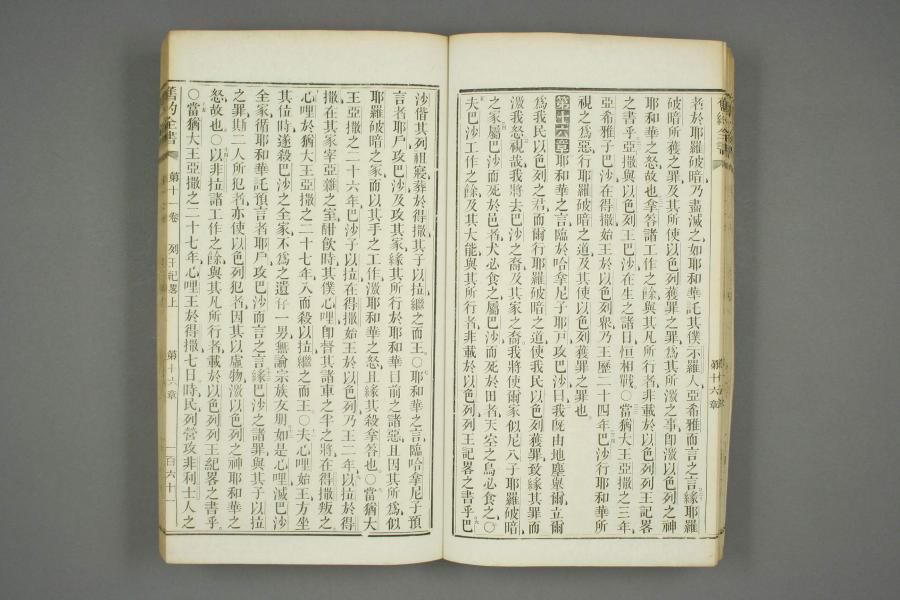 者於耶羅破暗乃盡滅之如耶和華託其僕示羅人亞希雅而言之言緣耶羅
破暗所獲之罪及其所使以色列獲罪之罪爲其所激之事卽激以色列之神
耶和華之怒故也拿答諸工作之餘與其凡所行者非載於以色列列王記畧
之書乎亞撒與以色列王巴沙在生之諸日恒相戰○當猶大王亞撒之三年
亞希雅子巴沙在得撒始王於以色列衆乃王歷二十四年巴沙行耶和華所
視之爲惡行耶羅破暗之道及其使以色列獲罪之罪也
第十六章耶和華之言臨於哈拿尼子耶戶攻巴沙曰我旣由地塵舉爾立爾
爲我民以色列之君而爾行耶羅破暗之道使我民以色列獲罪致緣其罪而
激我怒視哉我將去巴沙之裔及其家之裔我將使爾家似尼八子耶羅破暗
之家屬巴沙而死於邑者犬必食之屬巴沙而死於田者天空之鳥必食之○
夫巴沙工作之餘及其大能與其所行者非載於以色列列王記畧之書乎巴
第十六章
沙偕其列祖寢葬於得撒其子以拉繼之而王○耶和華之言臨哈拿尼子預
言者耶戶攻巴沙及攻其家緣其所行於耶和華目前之諸惡且因其所爲似
耶羅破暗之家而以其手之工作激耶和華之怒且緣其殺拿答也○當猶大
王亞撒之二十六年巴沙子以拉在得撒始王於以色列乃王二年以拉於得
撒在其家宰亞雜之室酣飲時其僕心哩卽督其諸車之半之將在得撒叛之
心哩於猶大王亞撒之二十七年入而殺以拉繼之而王○夫心哩始王方坐
其位時遂殺巴沙之全家不爲之遺存一男無論宗族女朋如是心哩滅巴沙
全家循耶和華託預言者耶戶攻巴沙而言之言緣巴沙之諸罪與其子以拉
之罪斯二人所犯者亦使以色列犯者因其以虛物激以色列之神耶和華之
怒故也○以非拉諸工作之餘與其凡所行者載於以色列列王紀畧之書乎
○當猶大王亞撒之二十七年心哩王於得撒七日時民列營攻非利士人之
舊約全書 第十一卷 列王紀畧上 第十六章 百六十一